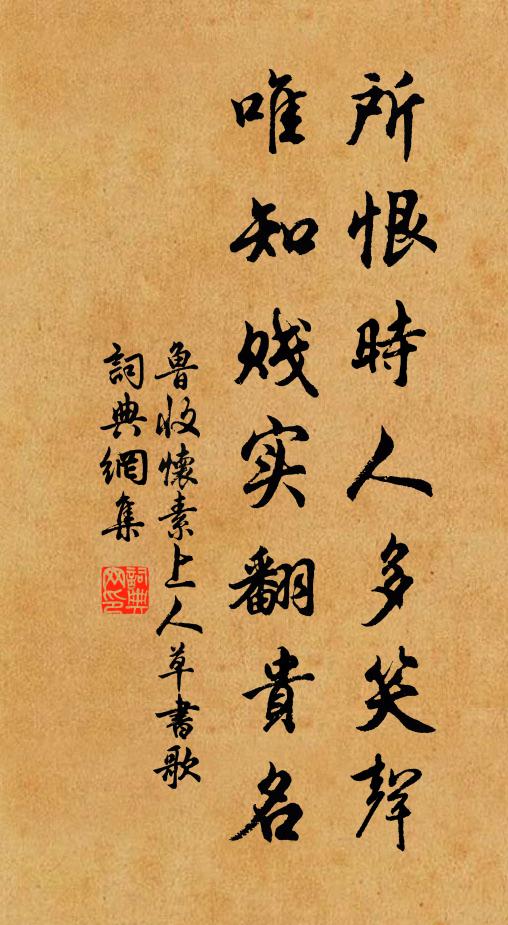 所恨時人多笑聲
唯知贱实翻貴名
魯收懷素上人草書歌
詞典網集
詞典网印